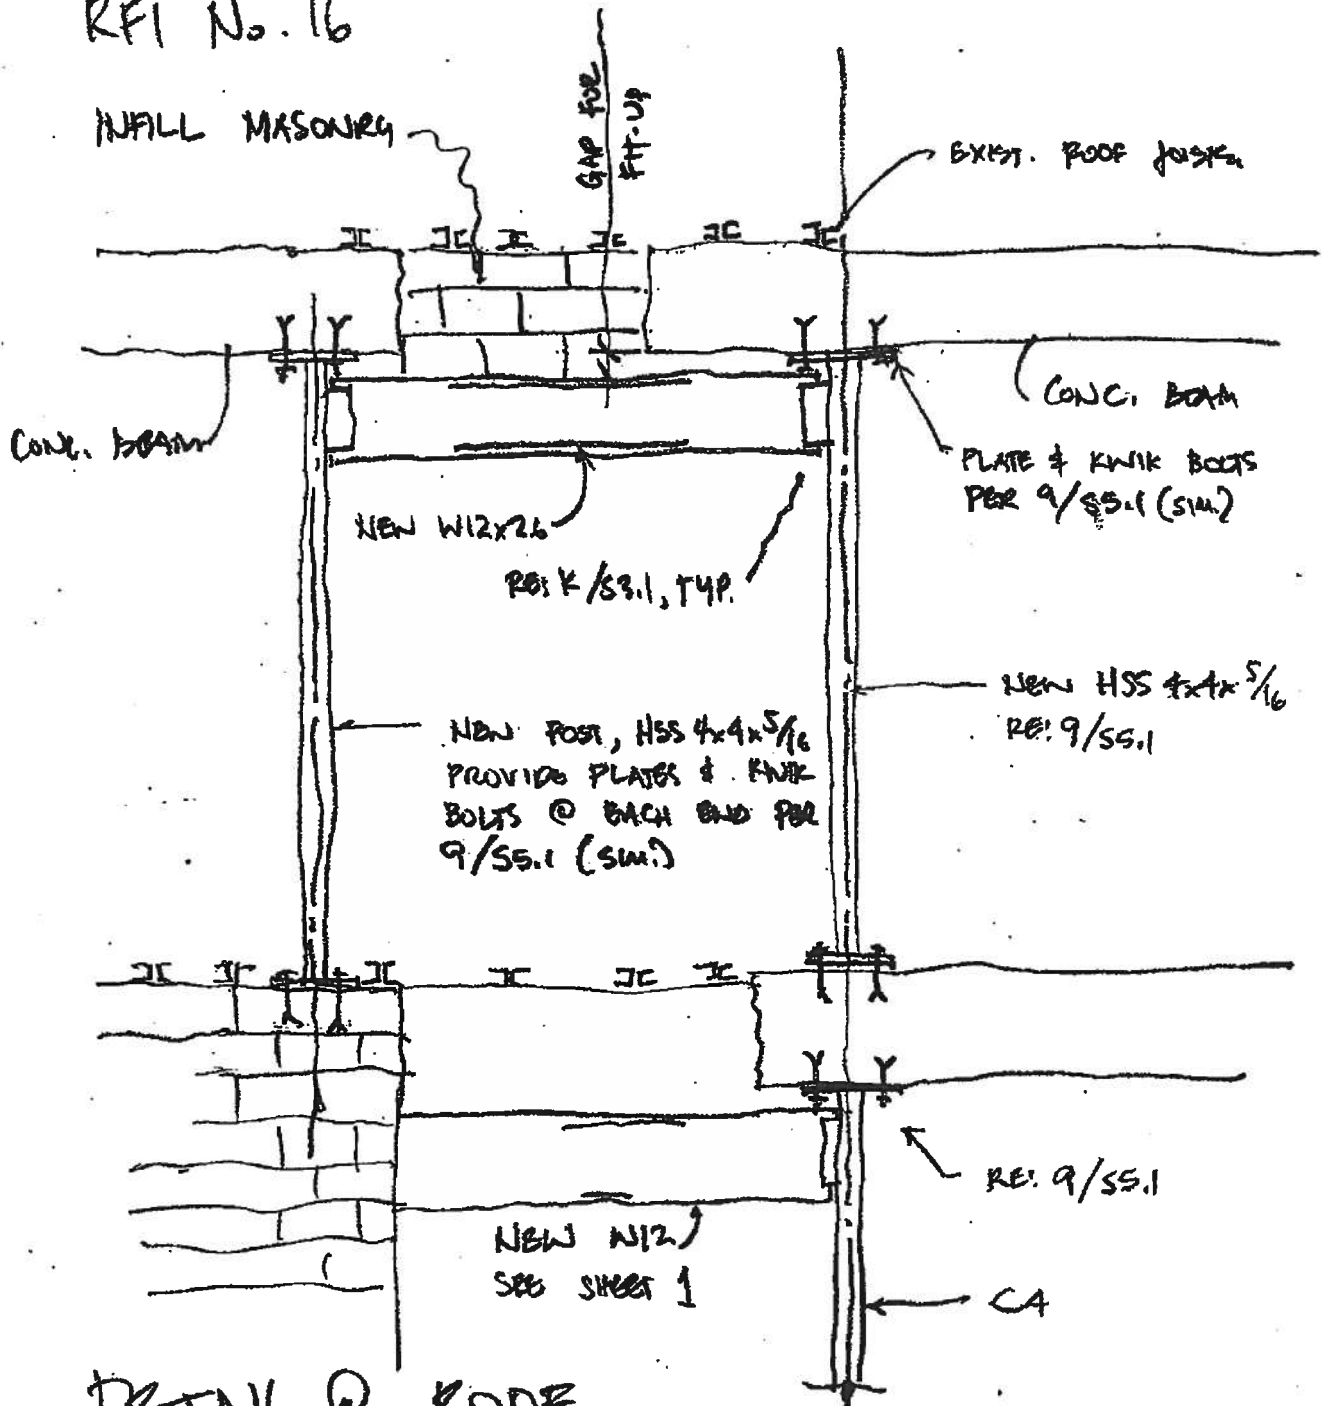 RFI No. 16
INFILL MASONRY
GAP FOR
FIT-UP
EXIST. ROOF JOISTS
CONC. BEAM
CONC. BEAM
PLATE & KWIK BOLTS
PER 9/S5.1 (SIM.)
NEW W12x26
RE: K/S3.1, TYP.
NEW HSS 4x4x5/16
RE: 9/S5.1
NEW POST, HSS 4x4x5/16
PROVIDE PLATES & KWIK
BOLTS @ EACH END PER
9/S5.1 (SIM.)
RE: 9/S5.1
NEW W12
SEE SHEET 1
C4
DETAIL @ ROOF